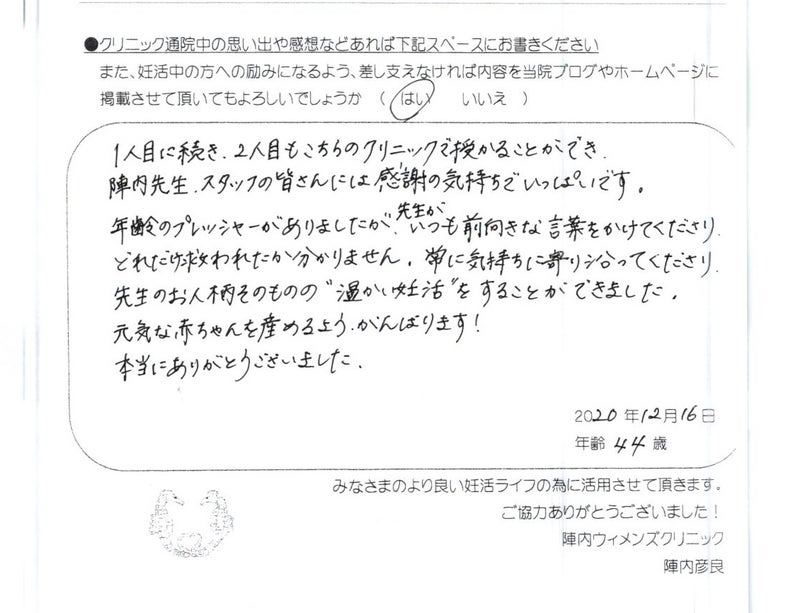 ●クリニック通院中の思い出や感想などあれば下記スペースにお書きください
また、妊活中の方への励みになるよう、差し支えなければ内容を当院ブログやホームページに
掲載させて頂いてもよろしいでしょうか （ はい いいえ ）
1人目に続き、2人目もこちらのクリニックで授かることができ、
陣内先生、スタッフの皆さんには感謝の気持ちでいっぱいです。
年齢のプレッシャーがありましたが、先生がいつも前向きな言葉をかけてくださり、
どれだけ救われたか分かりません。常に気持ちに寄り沿ってくださり、
先生のお人柄そのものの“温かい妊活”をすることができました。
元気な赤ちゃんを産めるよう、がんばります!
本当にありがとうございました。
2020 年 12 月 16 日
年齢 44 歳
みなさまのより良い妊活ライフの為に活用させて頂きます。
ご協力ありがとうございました！
陣内ウィメンズクリニック
陣内彦良